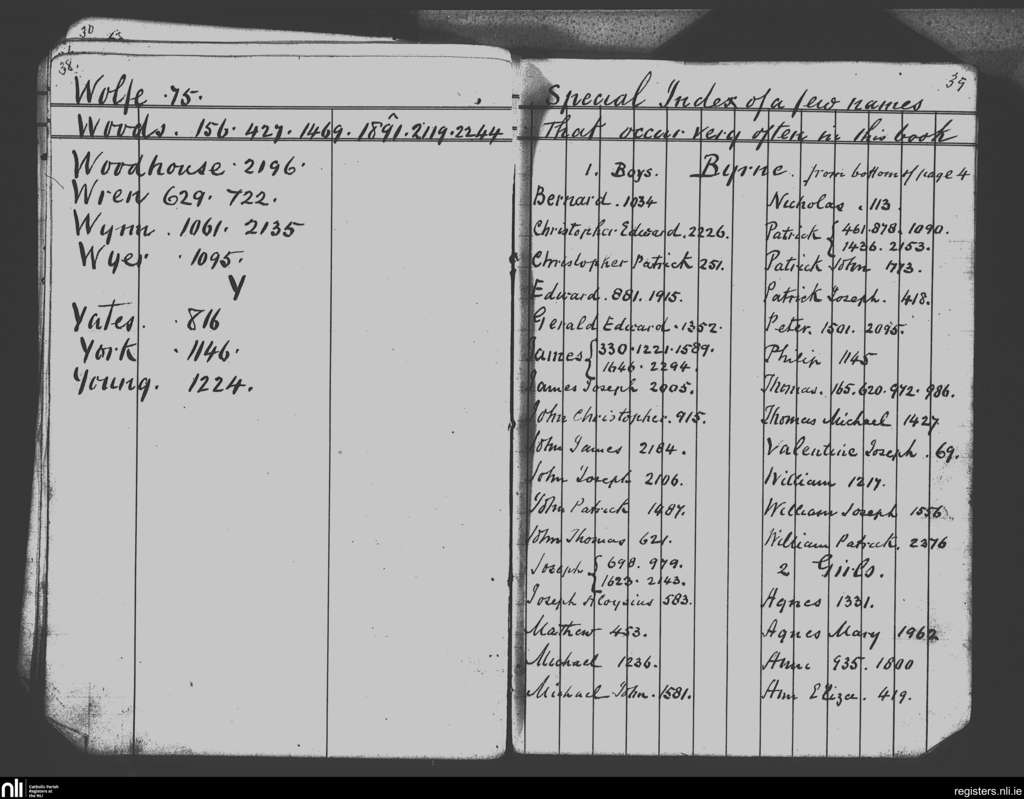 30
38.
Wolfe . 75.
Woods . 156. 427. 1469. 1891. 2119. 2244
Woodhouse . 2196.
Wren 629. 722.
Wynn . 1061. 2135
Wyer . 1095.
Y
Yates. . 816
York . 1146.
Young. 1224.
39
Special Index of a few names
that occur very often in this book
1. Boys. Byrne. from bottom of page 4
Bernard . 1034
Christopher Edward. 2226.
Christopher Patrick 251.
Edward. 881. 1915.
Gerald Edward. 1352.
James { 330. 1221. 1589.
1646. 2294.
James Joseph 2005.
John Christopher. 915.
John James 2184.
John Joseph 2106.
John Patrick 1487.
John Thomas 621.
Joseph { 698. 979.
1623. 2143.
Joseph Aloysius 583.
Mathew 453.
Michael 1236.
Michael John. 1581.
Nicholas . 113.
Patrick { 461. 878. 1090.
1436. 2153.
Patrick John 1773.
Patrick Joseph. 418.
Peter. 1501. 2095.
Philip 1145
Thomas. 165. 620. 972. 986.
Thomas Michael 1427
Valentine Joseph . 69.
William 1217.
William Joseph 1556
William Patrick. 2376
2 Girls.
Agnes 1331.
Agnes Mary 1962
Anne 935. 1800
Ann Eliza. 419.
nli
Catholic Parish
Registers at
the NLI
registers.nli.ie